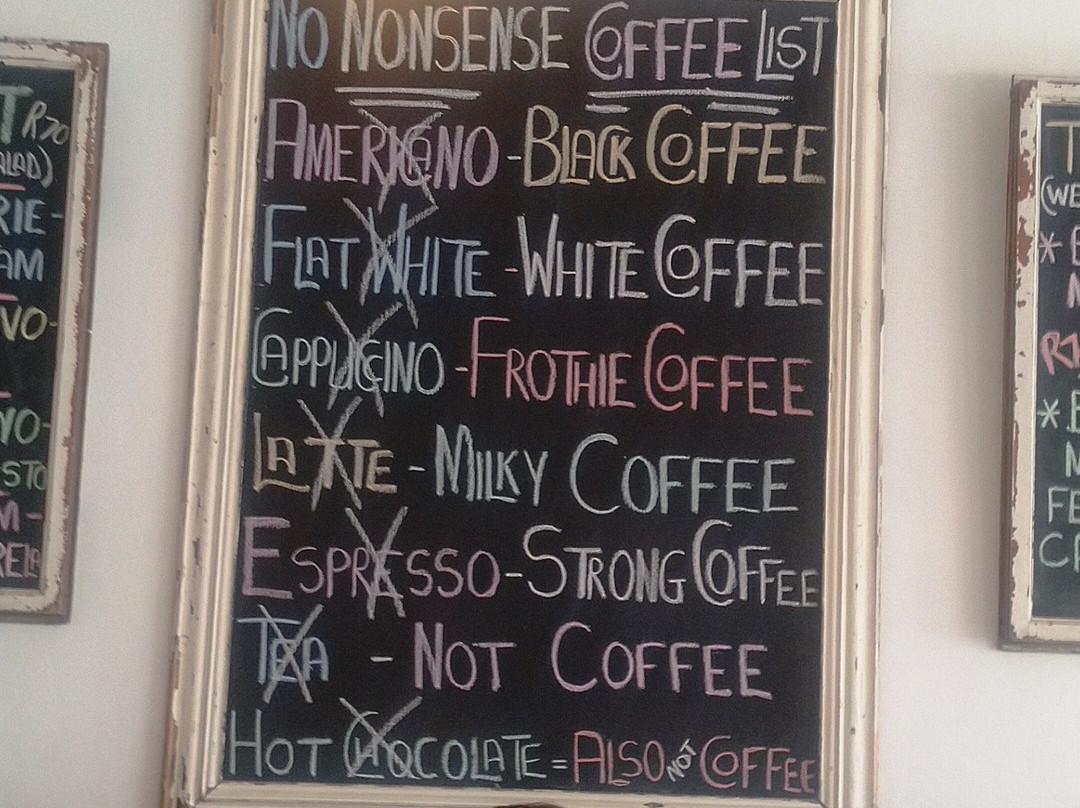 NO NONSENSE COFFEE LIST
AMERICANO - BLACK COFFEE
FLAT WHITE - WHITE COFFEE
CAPPUCCINO - FROTHIE COFFEE
LATTE - MILKY COFFEE
ESPRESSO - STRONG COFFEE
TEA - NOT COFFEE
HOT CHOCOLATE = ALSO NOT COFFEE
R70